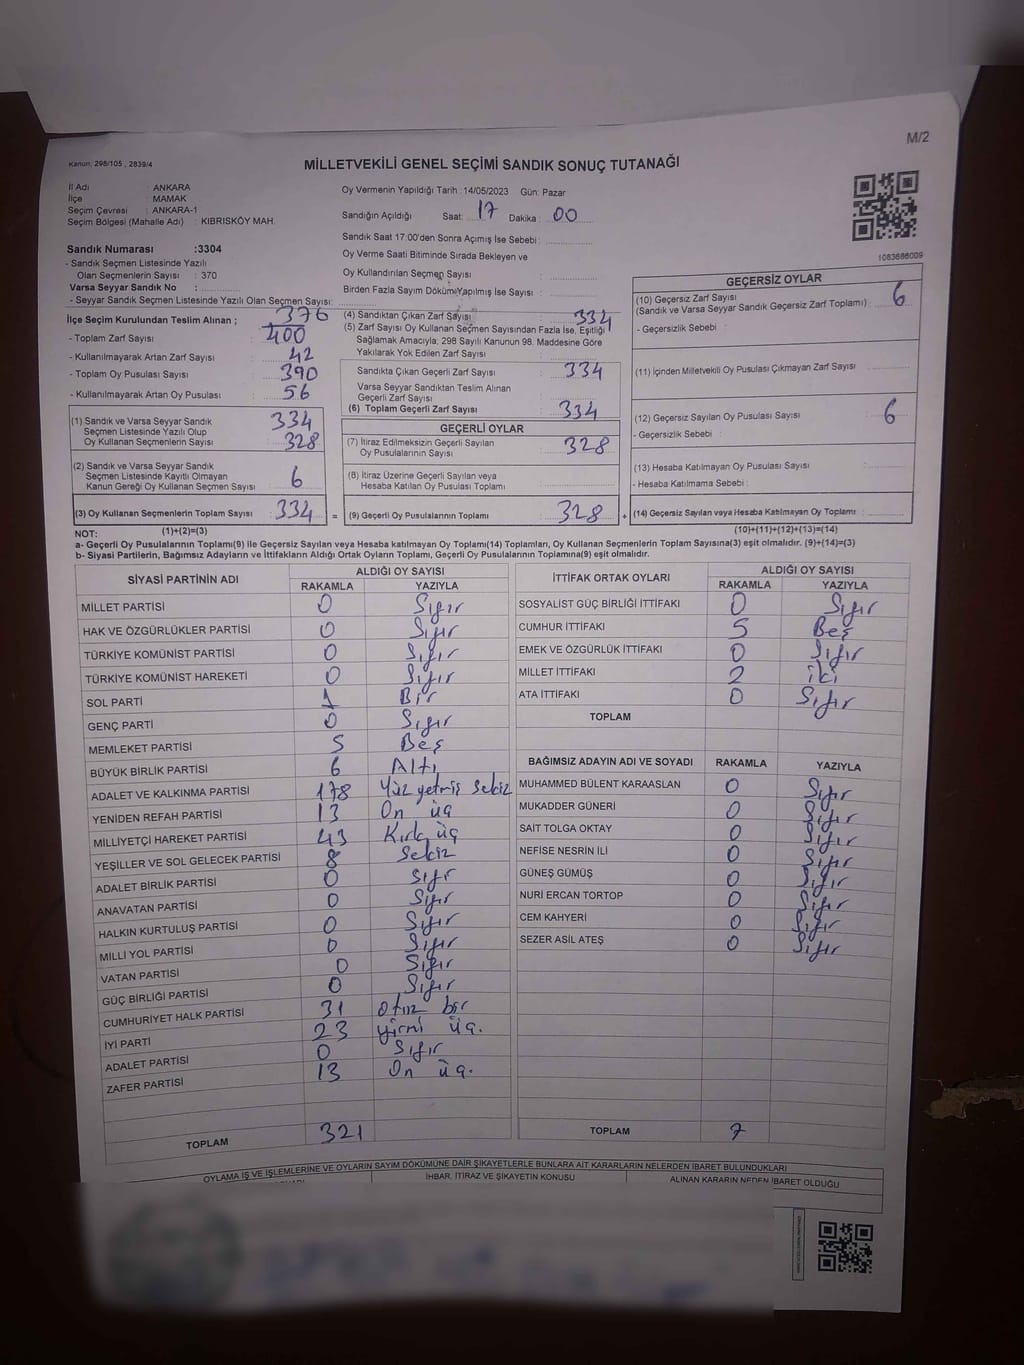 M/2
Kanun, 298/105 , 2839/4
MİLLETVEKİLİ GENEL SEÇİMİ SANDIK SONUÇ TUTANAĞI
İl Adı : ANKARA
İlçe : MAMAK
Seçim Çevresi : ANKARA-1
Seçim Bölgesi (Mahalle Adı) : KIBRISKÖY MAH.
Sandık Numarası :3304
- Sandık Seçmen Listesinde Yazılı
Olan Seçmenlerin Sayısı : 370
Varsa Seyyar Sandık No :
- Seyyar Sandık Seçmen Listesinde Yazılı Olan Seçmen Sayısı:
İlçe Seçim Kurulundan Teslim Alınan ; 376
- Toplam Zarf Sayısı : 400
- Kullanılmayarak Artan Zarf Sayısı : 42
- Toplam Oy Pusulası Sayısı : 390
- Kullanılmayarak Artan Oy Pusulası : 56
(1) Sandık ve Varsa Seyyar Sandık 334
Seçmen Listesinde Yazılı Olup
Oy Kullanan Seçmenlerin Sayısı : 328
(2) Sandık ve Varsa Seyyar Sandık
Seçmen Listesinde Kayıtlı Olmayan 6
Kanun Gereği Oy Kullanan Seçmen Sayısı :
(3) Oy Kullanan Seçmenlerin Toplam Sayısı : 334
Oy Vermenin Yapıldığı Tarih :14/05/2023 Gün: Pazar
Sandığın Açıldığı Saat: 17 Dakika : 00
Sandık Saat 17:00'den Sonra Açımış İse Sebebi :
Oy Verme Saati Bitiminde Sırada Bekleyen ve
Oy Kullandırılan Seçmen Sayısı :
Birden Fazla Sayım Dökümü Yapılmış İse Sayısı :
(4) Sandıktan Çıkan Zarf Sayısı : 334
(5) Zarf Sayısı Oy Kullanan Seçmen Sayısından Fazla İse, Eşitliği
Sağlamak Amacıyla, 298 Sayılı Kanunun 98. Maddesine Göre
Yakılarak Yok Edilen Zarf Sayısı :
Sandıkta Çıkan Geçerli Zarf Sayısı : 334
Varsa Seyyar Sandıktan Teslim Alınan
Geçerli Zarf Sayısı :
(6) Toplam Geçerli Zarf Sayısı : 334
GEÇERLİ OYLAR
(7) İtiraz Edilmeksizin Geçerli Sayılan
Oy Pusulalarının Sayısı : 328
(8) İtiraz Üzerine Geçerli Sayılan veya
Hesaba Katılan Oy Pusulası Toplamı :
= (9) Geçerli Oy Pusulalarının Toplamı : 328 +
1083686009
GEÇERSİZ OYLAR
(10) Geçersiz Zarf Sayısı
(Sandık ve Varsa Seyyar Sandık Geçersiz Zarf Toplamı) : 6
- Geçersizlik Sebebi :
(11) İçinden Milletvekili Oy Pusulası Çıkmayan Zarf Sayısı :
(12) Geçersiz Sayılan Oy Pusulası Sayısı : 6
- Geçersizlik Sebebi :
(13) Hesaba Katılmayan Oy Pusulası Sayısı :
- Hesaba Katılmama Sebebi :
(14) Geçersiz Sayılan veya Hesaba Katılmayan Oy Pusulası Toplamı :
NOT: (1)+(2)=(3) (10)+(11)+(12)+(13)=(14)
a- Geçerli Oy Pusulalarının Toplamı(9) ile Geçersiz veya Hesaba katılmayan Oy Toplamı(14) Toplamları, Oy Kullanan Seçmenlerin Toplam Sayısına(3) eşit olmalıdır. (9)+(14)=(3)
b- Siyasi Partilerin, Bağımsız Adayların ve İttifakların Aldığı Ortak Oyların Toplamı, Geçerli Oy Pusulalarının Toplamına(9) eşit olmalıdır.
SİYASİ PARTİNİN ADI ALDIĞI OY SAYISI
RAKAMLA YAZIYLA
MİLLET PARTİSİ 0 Sıfır
HAK VE ÖZGÜRLÜKLER PARTİSİ 0 Sıfır
TÜRKİYE KOMÜNİST PARTİSİ 0 Sıfır
TÜRKİYE KOMÜNİST HAREKETİ 0 Sıfır
SOL PARTİ 1 Bir
GENÇ PARTİ 0 Sıfır
MEMLEKET PARTİSİ 5 Beş
BÜYÜK BİRLİK PARTİSİ 6 Altı
ADALET VE KALKINMA PARTİSİ 178 Yüz yetmiş sekiz
YENİDEN REFAH PARTİSİ 13 On üç
MİLLİYETÇİ HAREKET PARTİSİ 43 Kırk üç
YEŞİLLER VE SOL GELECEK PARTİSİ 8 Sekiz
ADALET BİRLİK PARTİSİ 0 Sıfır
ANAVATAN PARTİSİ 0 Sıfır
HALKIN KURTULUŞ PARTİSİ 0 Sıfır
MİLLİ YOL PARTİSİ 0 Sıfır
VATAN PARTİSİ 0 Sıfır
GÜÇ BİRLİĞİ PARTİSİ 0 Sıfır
CUMHURİYET HALK PARTİSİ 31 otuz bir
İYİ PARTİ 23 yirmi üç.
ADALET PARTİSİ 0 Sıfır
ZAFER PARTİSİ 13 On üç.
TOPLAM 321
İTTİFAK ORTAK OYLARI ALDIĞI OY SAYISI
RAKAMLA YAZIYLA
SOSYALİST GÜÇ BİRLİĞİ İTTİFAKI 0 Sıfır
CUMHUR İTTİFAKI 5 Beş
EMEK VE ÖZGÜRLÜK İTTİFAKI 0 Sıfır
MİLLET İTTİFAKI 2 iki
ATA İTTİFAKI 0 Sıfır
TOPLAM
BAĞIMSIZ ADAYIN ADI VE SOYADI RAKAMLA YAZIYLA
MUHAMMED BÜLENT KARAASLAN 0 Sıfır
MUKADDER GÜNERİ 0 Sıfır
SAİT TOLGA OKTAY 0 Sıfır
NEFİSE NESRİN İLİ 0 Sıfır
GÜNEŞ GÜMÜŞ 0 Sıfır
NURİ ERCAN TORTOP 0 Sıfır
CEM KAHYERİ 0 Sıfır
SEZER ASİL ATEŞ 0 Sıfır
TOPLAM 7
OYLAMA İŞ VE İŞLEMLERİNE VE OYLARIN SAYIM DÖKÜMÜNE DAİR ŞİKAYETLERLE BUNLARA AİT KARARLARIN NELERDEN İBARET BULUNDUKLARI
İHBAR, İTİRAZ VE ŞİKAYETİN KONUSU
ALINAN KARARIN NEDEN İBARET OLDUĞU